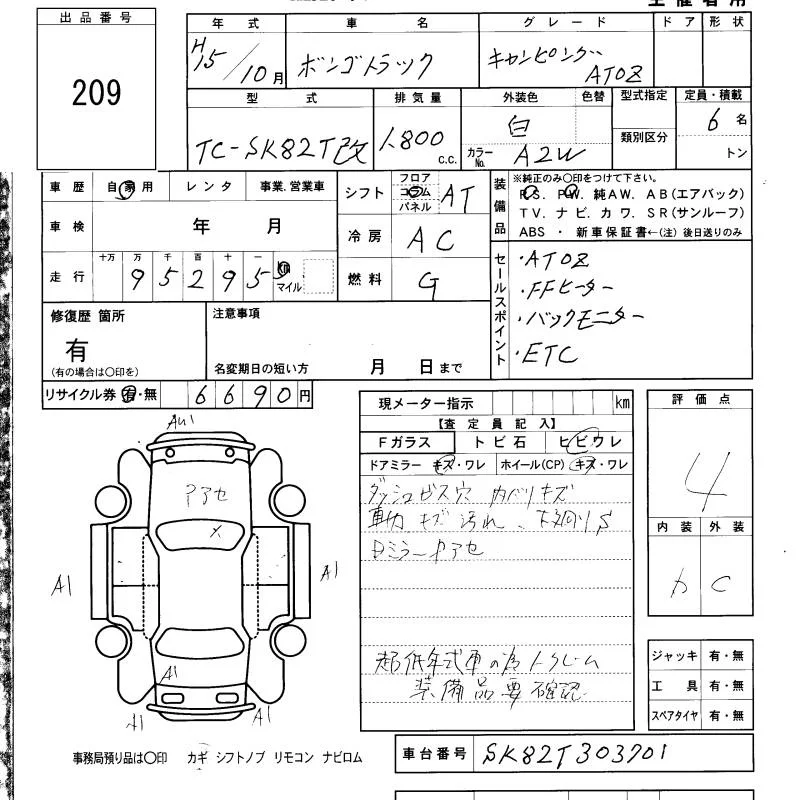 出品番号
209
年式 車名 グレード ドア 形状
H15/10月 ボンゴトラック キャンピングカー ATOZ
型式 排気量 外装色 色替 型式指定 定員・積載
類別区分
TC-SK82T改 1,800 c.c. 白 カラーNo. A2W 6名
トン
車歴 自家用 レンタ 事業.営業車
シフト フロア コラム パネル AT
装備品
※純正のみ○印をつけて下さい。
P.S. P.W. 純AW. AB(エアバック)
TV. ナビ. カワ. SR(サンルーフ)
ABS ・ 新車保証書←(注) 後日送りのみ
車検 年 月
冷房 AC
走行 十万 万 千 百 十 一
95295 km マイル
燃料 G
セールスポイント
・ATOZ
・FFヒーター
・バックモニター
・ETC
修復歴 箇所
有
(有の場合は○印を)
注意事項
名変期日の短い方 月 日まで
リサイクル券 有・無 6690円
現メーター指示 km
【査定員記入】
Fガラス トビ石 ヒビワレ
ドアミラー キズ・ワレ ホイール(CP) キズ・ワレ
ダッシュビス穴 内ハリキズ
キズ 汚れ、
ミラー
超低年式車の為
装備品要確認
評価点
4
内装 外装
C
A1
A1
A1
A1
A1
A1
X
ジャッキ 有・無
工具 有・無
スペアタイヤ 有・無
事務局預り品は○印 カギ シフトノブ リモコン ナビロム
車台番号 SK82T303701